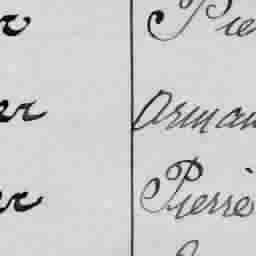 r Pie
er Arman
er Pierre